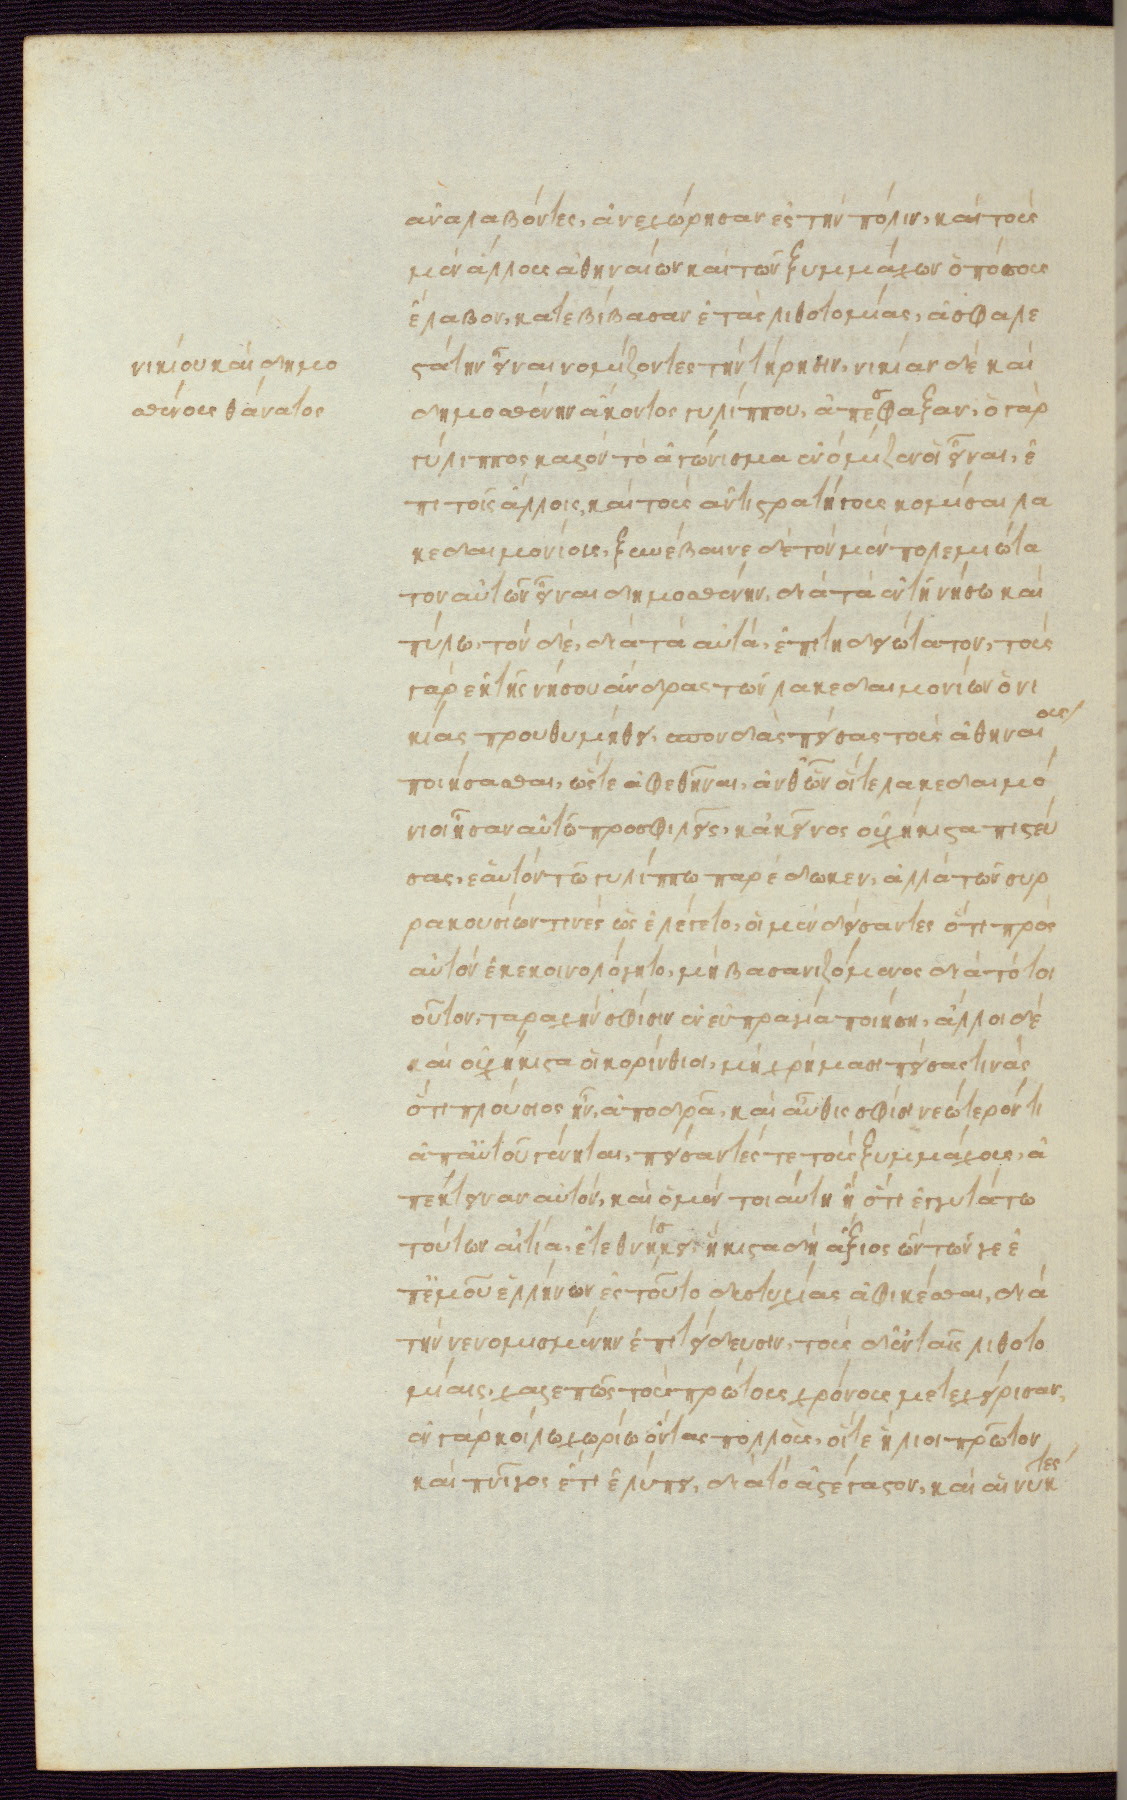 ἀναλαβόντες, ἀνεχώρησαν ἐς τὴν πόλιν, καὶ τοὺς
μὲν ἄλλους ἀθηναίων καὶ τῶν ξυμμάχων ὁπόσους
ἔλαβον, κατεβίβασαν ἐ τὰς λιθοτομίας, ἀσφαλε
στάτην εἶναι νομίζοντες τὴν τήρησιν, νικίαν δὲ καὶ
νικίου καὶ δημο
σθένους θάνατος
δημοσθένην ἄκοντος γυλίππου, ἀπέσφαξαν, ὁ γὰρ
γύλιππος καλὸν τὸ ἀγώνισμα ἐνόμιζεν οἷ εἶναι, ἐ
πι τοῖς ἄλλοις, καὶ τοὺς ἀντιστρατήγους κομίσαι λα
κεδαιμονίοις, ξυνέβαινε δὲ τὸν μὲν πολεμιώτα
τον αὐτῶν εἶναι δημοσθένην, διὰ τὰ ἐν τῇ νήσω καὶ
πύλω, τὸν δὲ, διὰ τὰ αὐτὰ, ἐπιτηδειώτατον, τοὺς
γὰρ ἐκ τῆς νήσου ἄνδρας τῶν λακεδαιμονίων ὁ νι
κίας προυθυμήθη, σπονδὰς πείσας τοὺς ἀθηναίους
ποιήσασθαι, ὥστε ἀφεθῆναι, ἀνθ ὧν οἵ τε λακεδαιμό
νιοι ἦσαν αὐτῶ προσφιλεῖς, κἀκεῖνος οὐχ ἥκιστα πιστεύ
σας, ἑαυτὸν τῶ γυλίππω παρέδωκεν, ἀλλὰ τῶν συρ
ρακουσίων τινὲς ὡς ἐλέγετο, οἱ μὲν δείσαντες ὅτι πρὸς
αὐτὸν ἐκεκοινολόγητο, μὴ βασανιζόμενος διὰ τὸ τοι
οῦτον, ταραχὴν σφίσιν ἐν εὐπραγία ποιήση, ἄλλοι δὲ
καὶ οὐχ ἥκιστα οἱ κορίνθιοι, μὴ χρήμασι πείσας τινὰς
ὅτι πλούσιος ἦν, ἀποδρᾶ, καὶ αὖθις σφίσι νεώτερόν τι
ἀπ αὐτοῦ γένηται, πείσαντές τε τοὺς ξυμμάχους, ἀ
πέκτειναν αὐτὸν, καὶ ὁ μὲν τοιαύτη ἢ ὅτι ἐγγυτάτω
τούτων αἰτία, ἐτεθνήκει, ἥκιστα δὴ ἄξιος ὢν τῶν γε ἐ
π ἐμοῦ ἑλλήνων ἐς τοῦτο δυστυχίας ἀφικέσθαι, διὰ
τὴν νενομισμένην ἐπιτήδευσιν, τοὺς δ' ἐν ταῖς λιθοτο
μίαις, χαλεπῶς τοὺς πρώτους χρόνους μετεχείρισαν,
ἐν γὰρ κοίλω χωρίω ὄντας πολλοὺς, οἵ τε ἥλιοι πρῶτον
καὶ πνῖγος ἔτι ἐλύπει, διὰ τὸ ἀστέγαστον, καὶ αἱ νύκτες